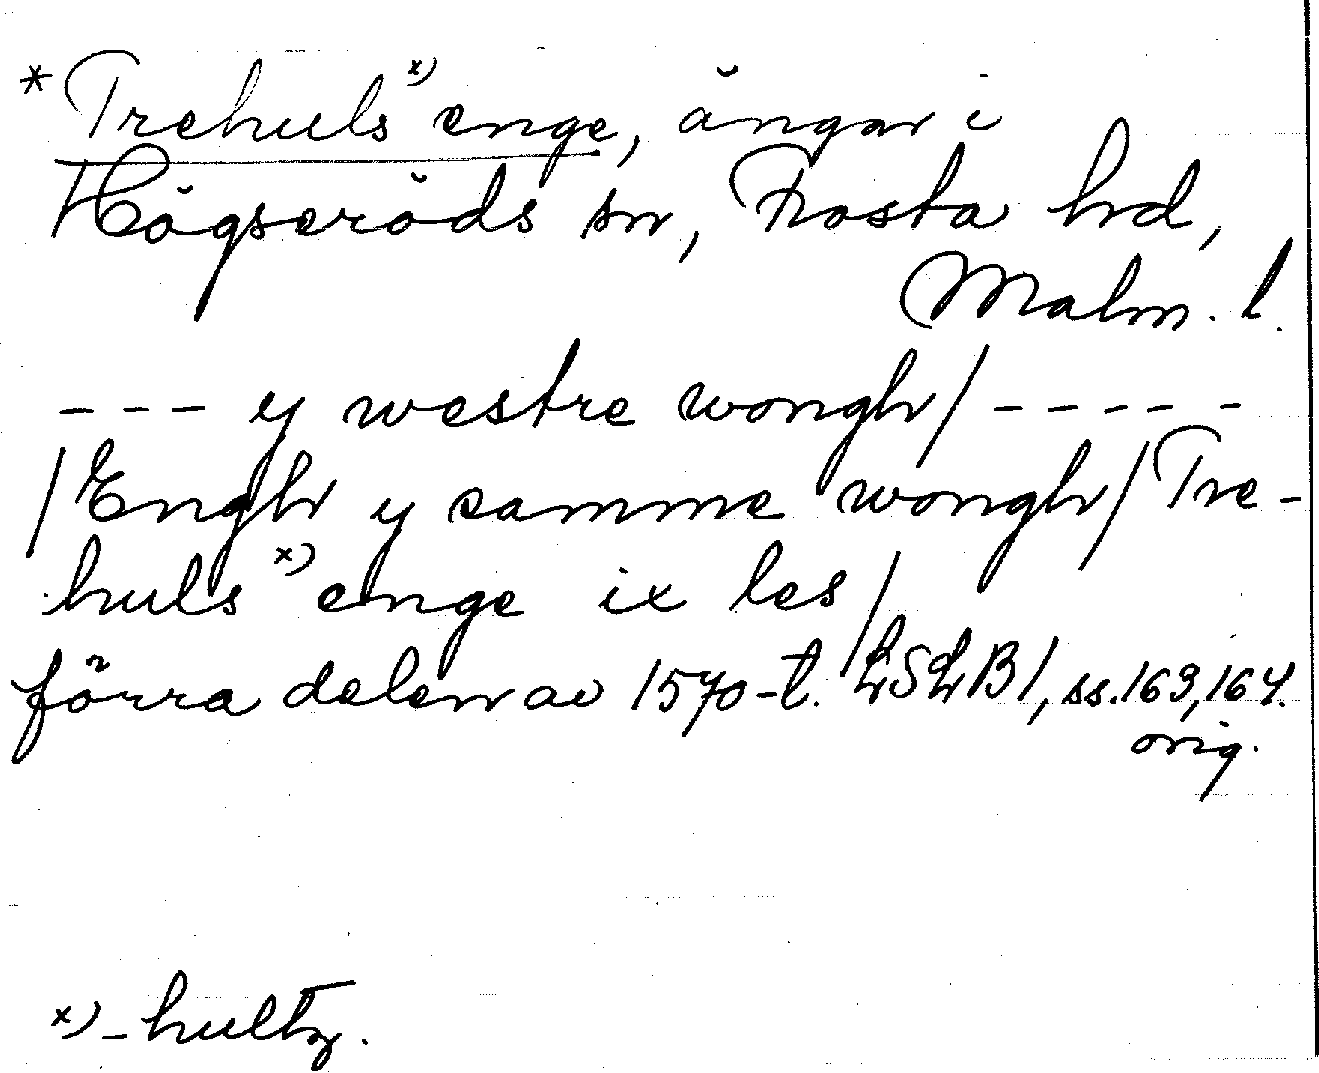 * Trehuls x) enge, ängar i
Högseröds sn, Frosta hd,
Malm. l.
--- y westre wongh/ -----
/Engh y samme wongh/ Tre-
huls x) enge ix les/
förra delen av 1570-t. LSLB1, ss. 163, 164.
orig.
x) -hultz.